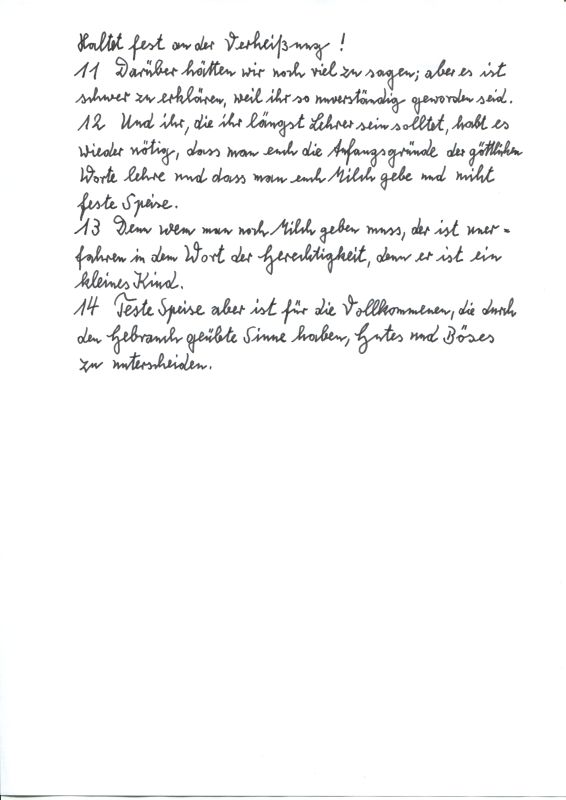 Haltet fest an der Verheißung !
11 Darüber hätten wir noch viel zu sagen; aber es ist
schwer zu erklären, weil ihr so unverständig geworden seid.
12 Und ihr, die ihr längst Lehrer sein solltet, habt es
wieder nötig, dass man euch die Anfangsgründe der göttlichen
Worte lehre und dass man euch Milch gebe und nicht
feste Speise.
13 Denn wem man noch Milch geben muss, der ist uner=
fahren in dem Wort der Gerechtigkeit, denn er ist ein
kleines Kind.
14 Feste Speise aber ist für die Vollkommenen, die durch
den Gebrauch geübte Sinne haben, Gutes und Böses
zu unterscheiden.